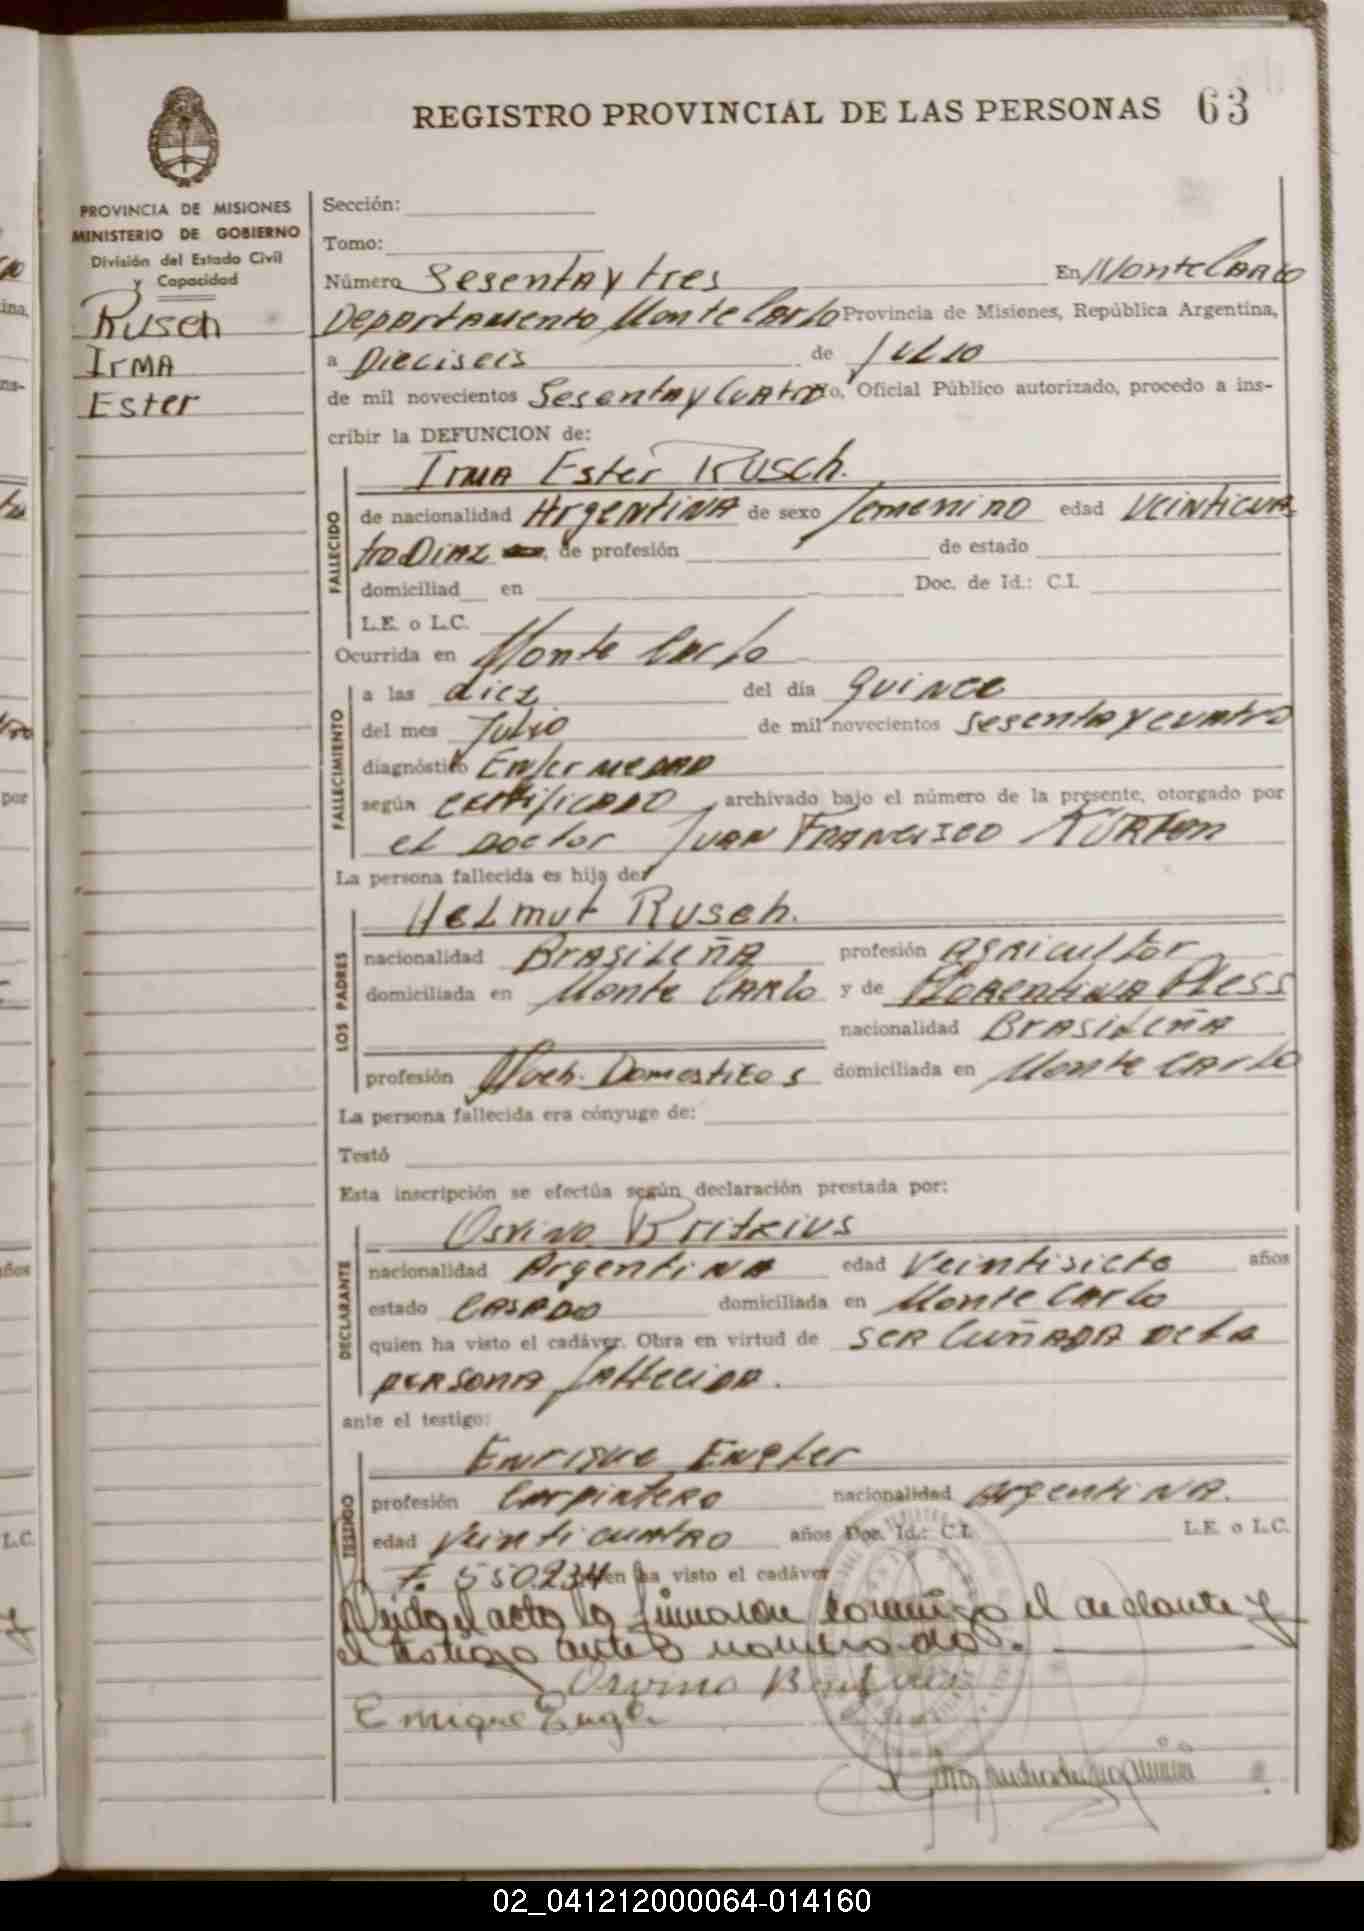 REGISTRO PROVINCIAL DE LAS PERSONAS 63
PROVINCIA DE MISIONES
MINISTERIO DE GOBIERNO
División del Estado Civil
y Capacidad
Rusch
Irma
Ester
Sección:
Tomo:
Número Sesenta y tres En Monte Carlo
Departamento Monte Carlo Provincia de Misiones, República Argentina,
a Dieciseis de Julio
de mil novecientos Sesenta y Cuatro yo, Oficial Público autorizado, procedo a ins-
cribir la DEFUNCION de:
Irma Ester Rusch.
FALLECIDO
de nacionalidad Argentina de sexo femenino edad veinticua
tro Diaz de profesión de estado
domiciliad en Doc. de Id.: C.I.
L.E. o L.C.
Ocurrida en Monte Carlo
FALLECIMIENTO
a las diez del día quince
del mes Julio de mil novecientos sesenta y cuatro
diagnóstico Enfermedad
según certificado archivado bajo el número de la presente, otorgado por
el Doctor Juan Francisco
La persona fallecida es hija de:
LOS PADRES
Helmut Rusch.
nacionalidad Brasileña profesión Agricultor
domiciliada en Monte Carlo y de Florentina Pless
nacionalidad Brasileña
profesión Domesticos domiciliada en Monte Carlo
La persona fallecida era cónyuge de:
Testó
Esta inscripción se efectúa según declaración prestada por:
DECLARANTE
Osvino Britzius
nacionalidad Argentina edad Veintisiete años
estado Casado domiciliada en Monte Carlo
quien ha visto el cadáver. Obra en virtud de ser cuñada de la
persona fallecida.
ante el testigo:
TESTIGO
Enrique Engler
profesión Carpintero nacionalidad Argentina.
edad Veinticuatro años Doc. Id.: C.I. L.E. o L.C.
7. 550.234 quien ha visto el cadáver
Leida el acta la firmaron conmigo el declarante y
el testigo antes nomerados.
Enrique Engler
02_041212000064-014160